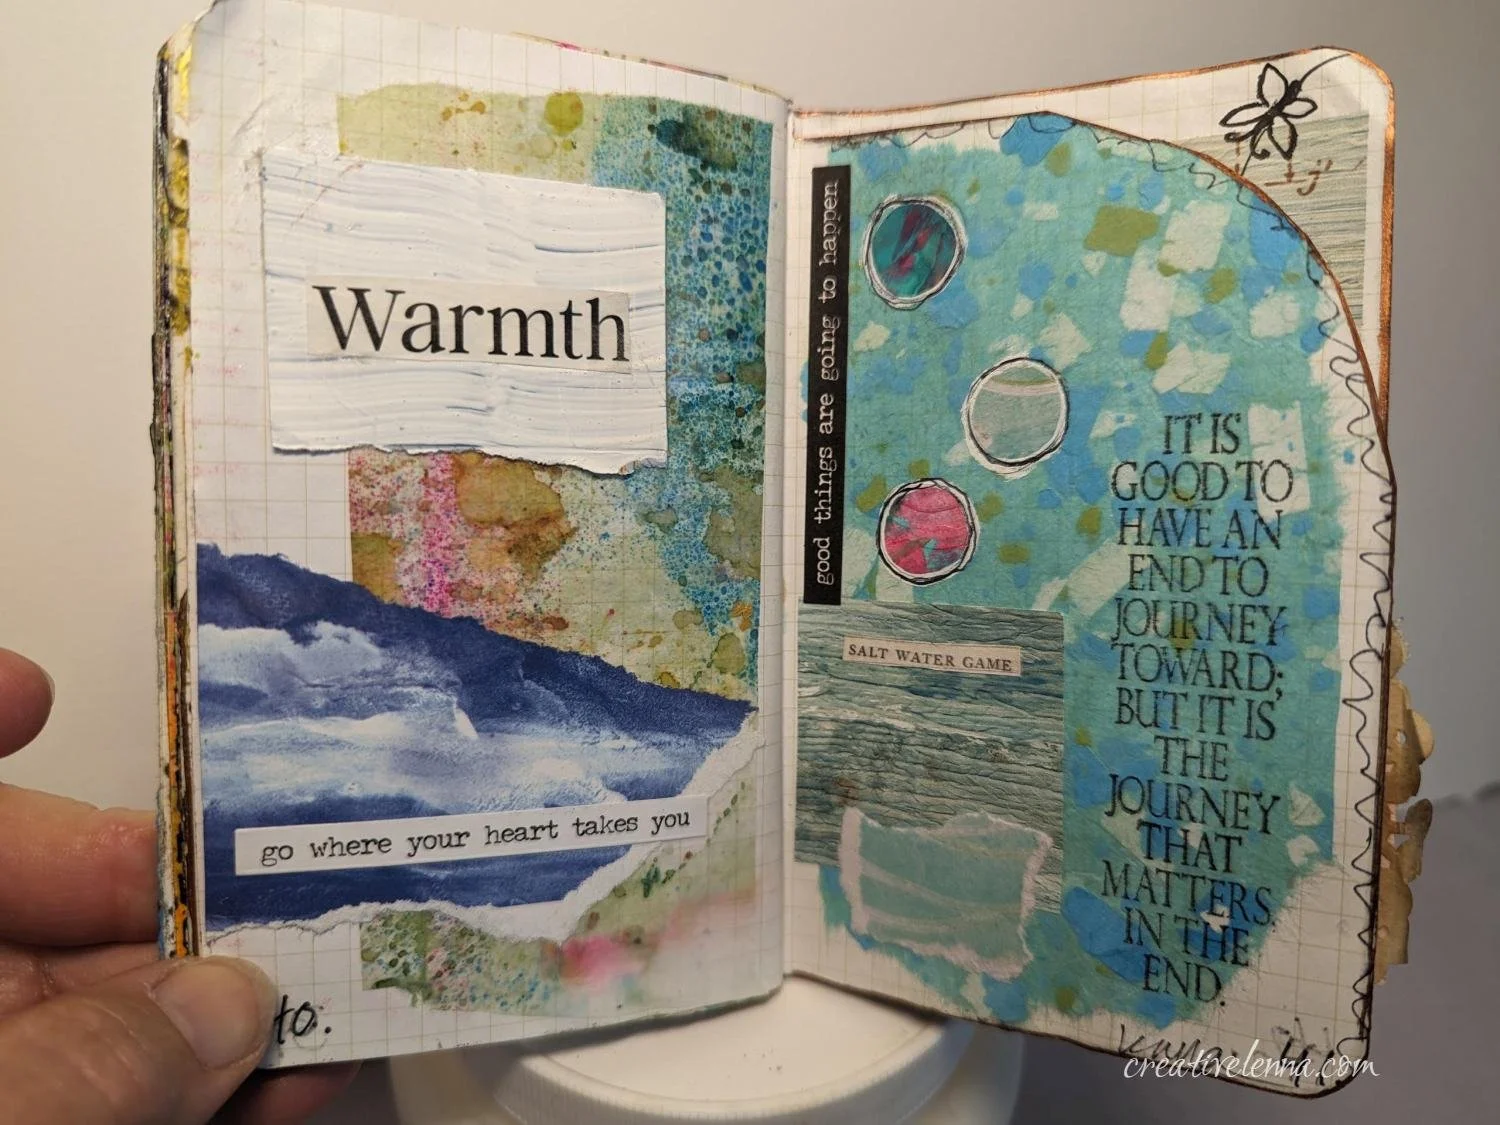 Warmth
go where your heart takes you
to.
good things are going to happen
SALT WATER GAME
IT IS
GOOD TO
HAVE AN
END TO
JOURNEY
TOWARD;
BUT IT IS
THE
JOURNEY
THAT
MATTERS,
IN THE
END.
creativelenna.com